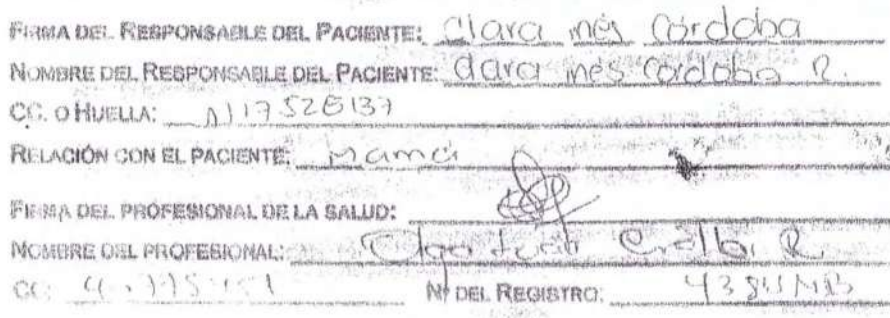 FIRMA DEL RESPONSABLE DEL PACIENTE: Clara inés Córdoba
NOMBRE DEL RESPONSABLE DEL PACIENTE: Clara ines Cordoba R.
CC. O HUELLA:
RELACIÓN CON EL PACIENTE: Mamá
FIRMA DEL PROFESIONAL DE LA SALUD:
NOMBRE DEL PROFESIONAL: Olga
CC: Nº DEL REGISTRO: